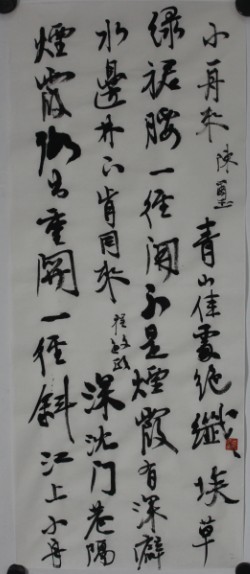 小舟來 陳 青山佳處絕纖埃草
綠裙腰一徑開不是煙霞有深癖
水邊林下肯同來 程敏政 深沈門巷隔
煙霞重關一徑斜江上小舟